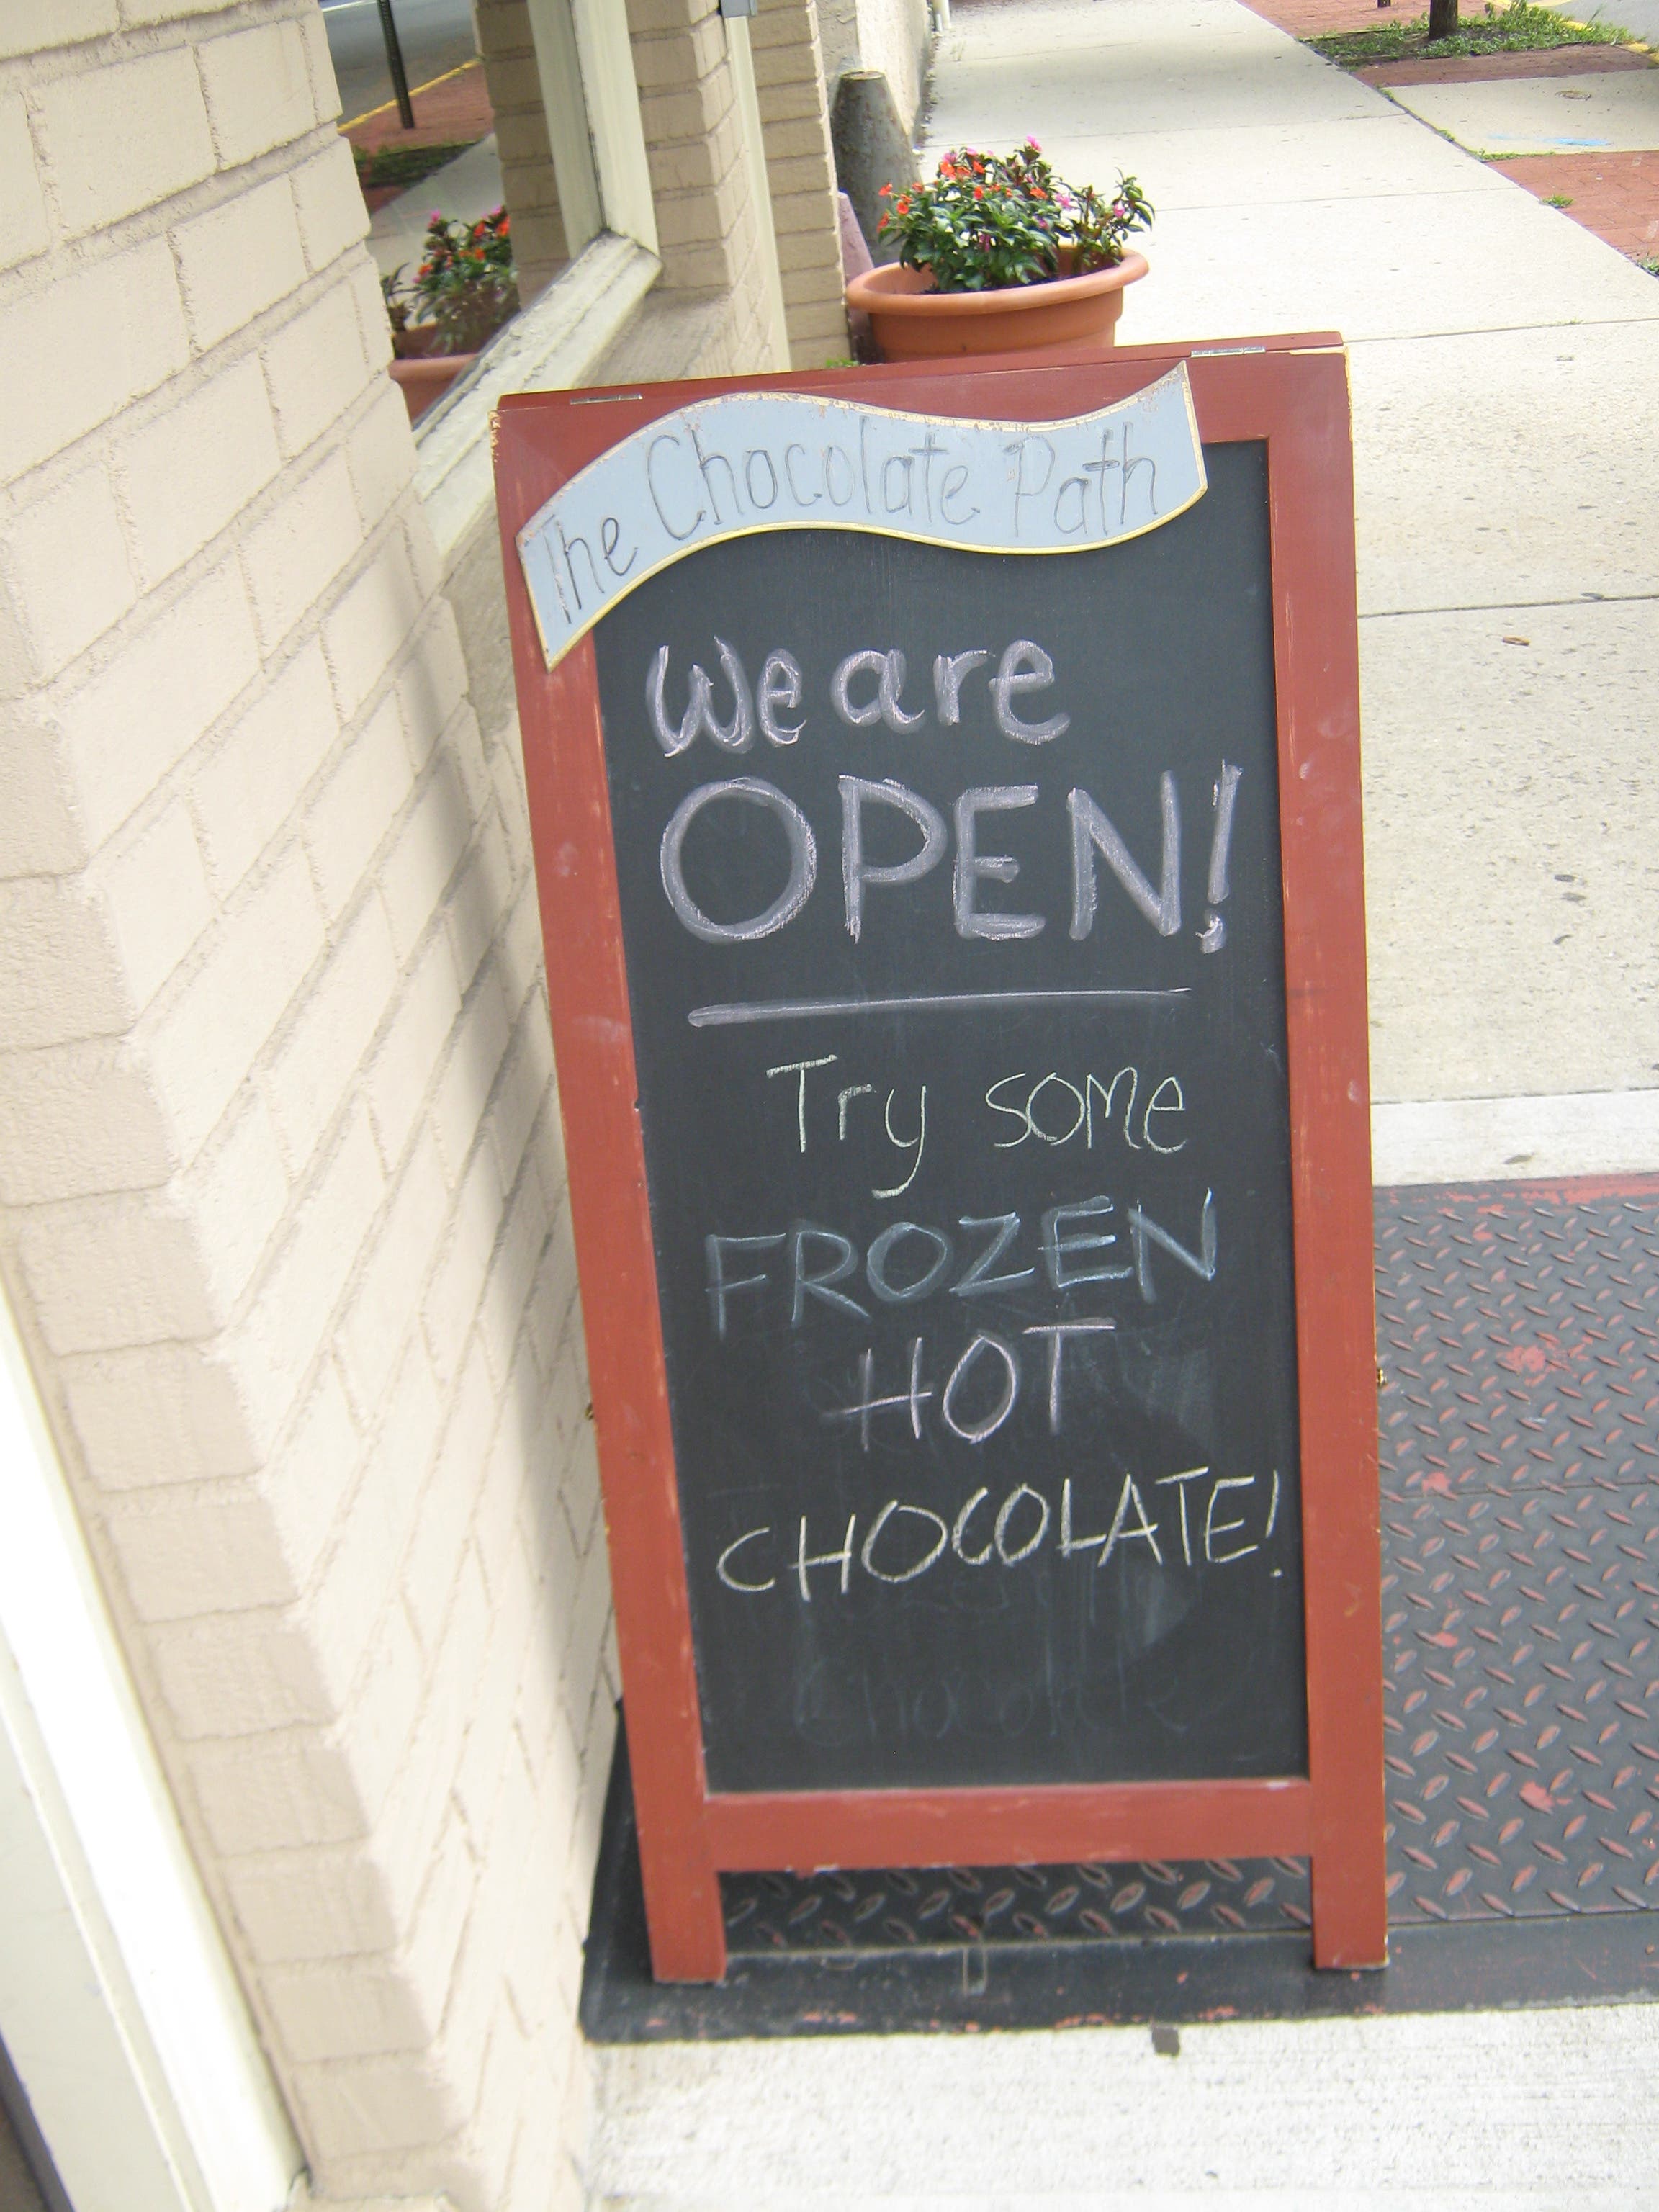 The Chocolate Path
We are
OPEN!
Try some
FROZEN
HOT
CHOCOLATE!
Chocolate